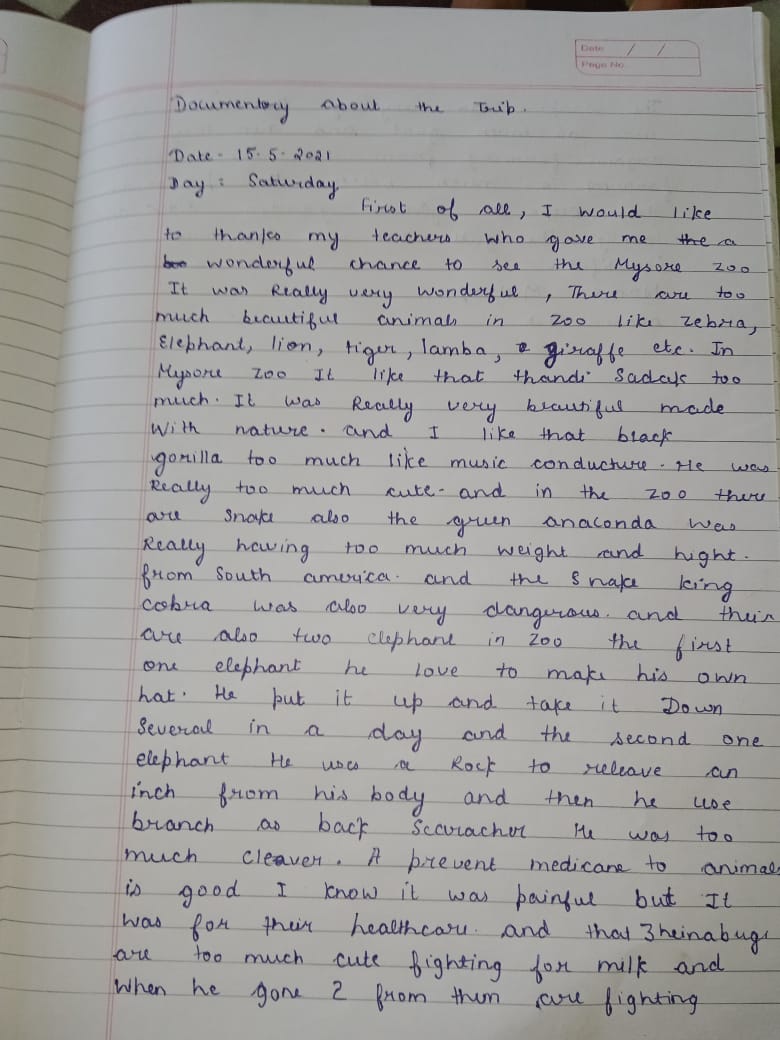 Date / /
Page No.
Documentory about the Trip.
Date - 15.5.2021
Day : Saturday
First of all, I would like
to thanks my teachers who gave me the a
wonderful chance to see the Mysore zoo
It was Really very wonderful, There are too
much beautiful animals in zoo like zebra,
Elephant, lion, tiger, lamba, giraffe etc. In
Mysore zoo It like that thandi Sadak too
much. It was Really very beautiful made
With nature. and I like that black
gorilla too much like music conducture. He was
Really too much cute. and in the zoo there
are snake also the green anaconda was
Really having too much weight and hight.
from South america. and the snake king
cobra was also very dangerous. and their
are also two elephant in zoo the first
one elephant he love to make his own
hat. He put it up and take it Down
Several in a day and the second one
elephant He uses a Rock to releave an
inch from his body and then he use
branch as back Scaracher He was too
much cleaver. A prevent medicane to animals
is good I know it was painful but It
was for their healthcare. and that 3 heinabugs
are too much cute fighting for milk and
When he gone 2 from them are fighting